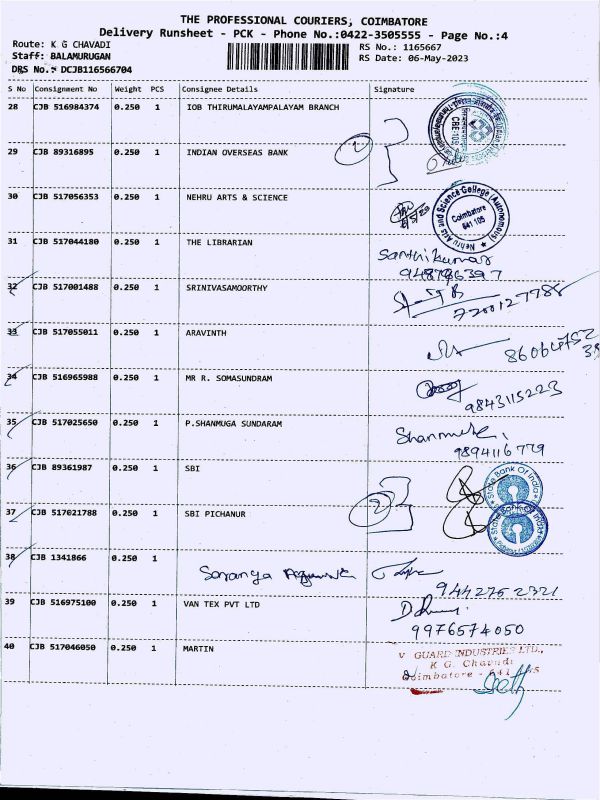 THE PROFESSIONAL COURIERS, COIMBATORE
Delivery Runsheet - PCK - Phone No.:0422-3505555 - Page No.:4
Route: K G CHAVADI
RS No.: 1165667
Staff: BALAMURUGAN
RS Date: 06-May-2023
DRS No.: DCJB116566704
S No Consignment No Weight PCS Consignee Details Signature
28 CJB 516984374 0.250 1 IOB THIRUMALAYAMPALAYAM BRANCH
29 CJB 89316895 0.250 1 INDIAN OVERSEAS BANK
2
30 CJB 517056353 0.250 1 NEHRU ARTS & SCIENCE
Nehru Arts and Science College (Autonomous)
Coimbatore
641 105
31 CJB 517044180 0.250 1 THE LIBRARIAN
Santhikumar
948796397
32 CJB 517001488 0.250 1 SRINIVASAMOORTHY
7200127788
33 CJB 517055011 0.250 1 ARAVINTH
34 CJB 516965988 0.250 1 MR R. SOMASUNDRAM
9843115223
35 CJB 517025650 0.250 1 P.SHANMUGA SUNDARAM
9894116779
36 CJB 89361987 0.250 1 SBI
State Bank Of India
37 CJB 517021788 0.250 1 SBI PICHANUR
2
State Bank Of India
38 CJB 1341866 0.250 1
Saranya
9442752321
39 CJB 516975100 0.250 1 VAN TEX PVT LTD
9976574050
40 CJB 517046050 0.250 1 MARTIN
V GUARD INDUSTRIES LTD.,
K G. Chavadi
Coimbatore - 641